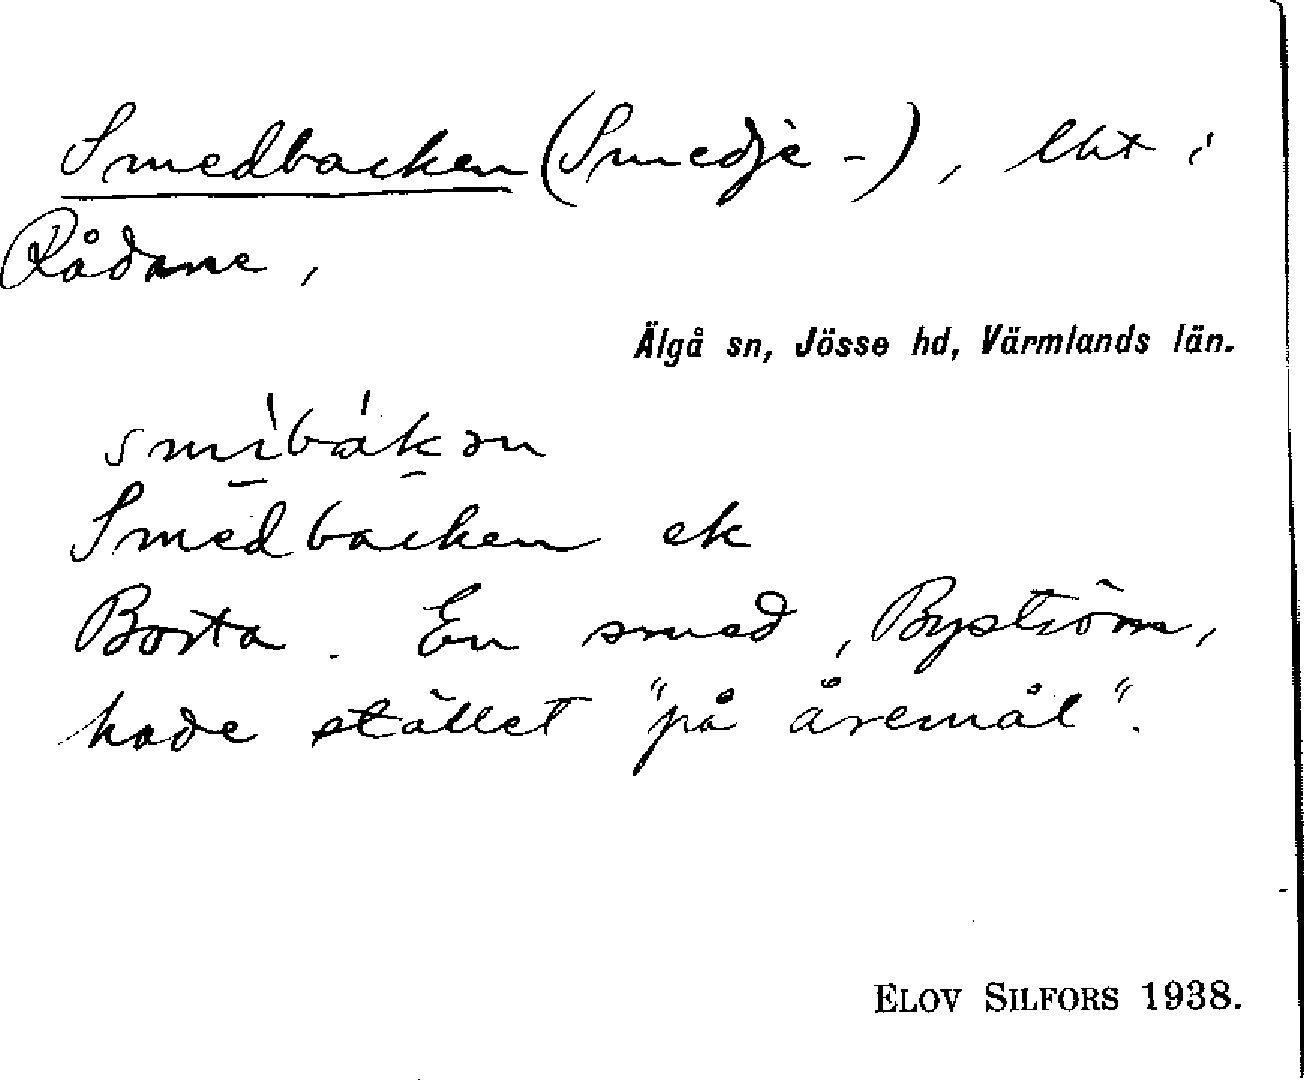 Smedbacken (Smedje-), lht i
Rådane,
Älgå sn, Jösse hd, Värmlands län.
Smedbacken ek
Borta. En smed, Byström,
hade stället "på åremål".
ELOV SILFORS 1938.